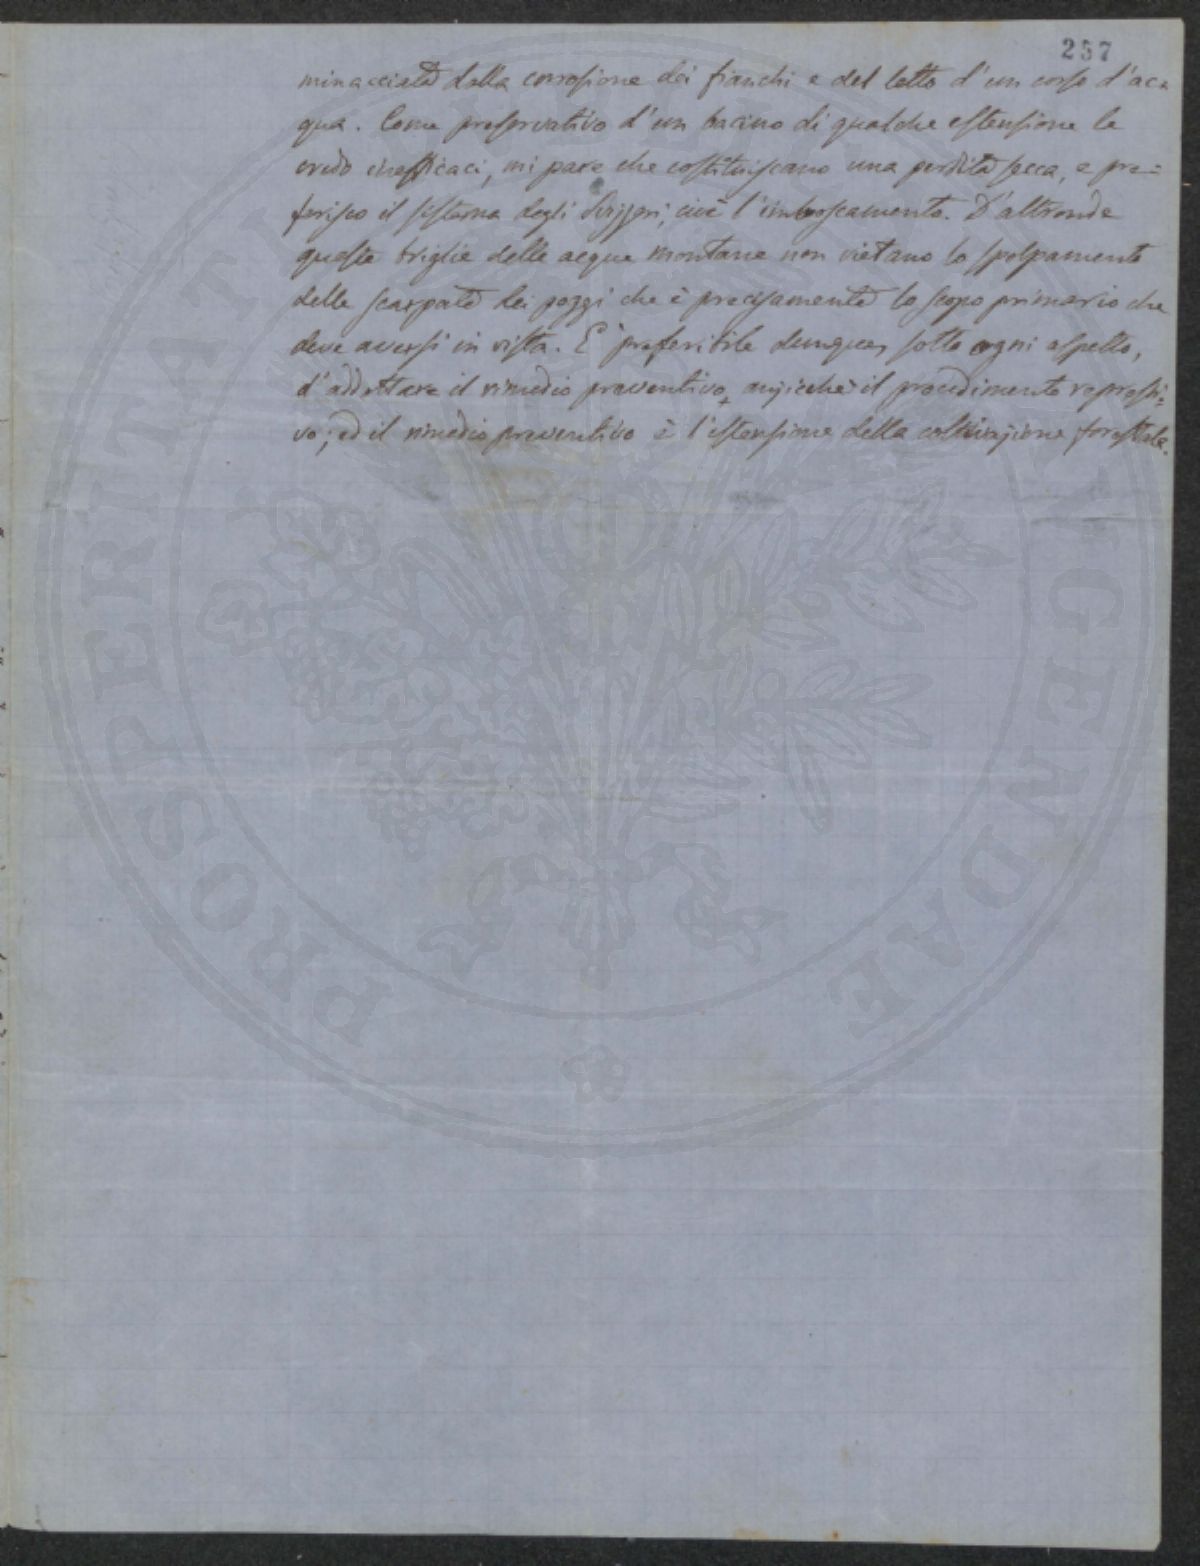 257
minacciate dalla corrosione dei fianchi e del letto d'un corso d'ac=
qua. Come preservativo d'un bacino di qualche estensione le
credo inefficaci, mi pare che costituiscano una perdita secca, e pre=
ferisco il sistema degli Svizzeri, cioè l'imboscamento. D'altronde
queste briglie delle acque montane non vietano lo spolpamento
delle scarpate dei poggi che è precisamente lo scopo primario che
deve aversi in vista. E' preferibile dunque, sotto ogni aspetto,
d'addottare il rimedio preventivo, anzicchè il procedimento repressi=
vo; ed il rimedio preventivo è l'estensione della coltivazione forestale.
PROSPERITATI PUBLICAE AUGENDAE